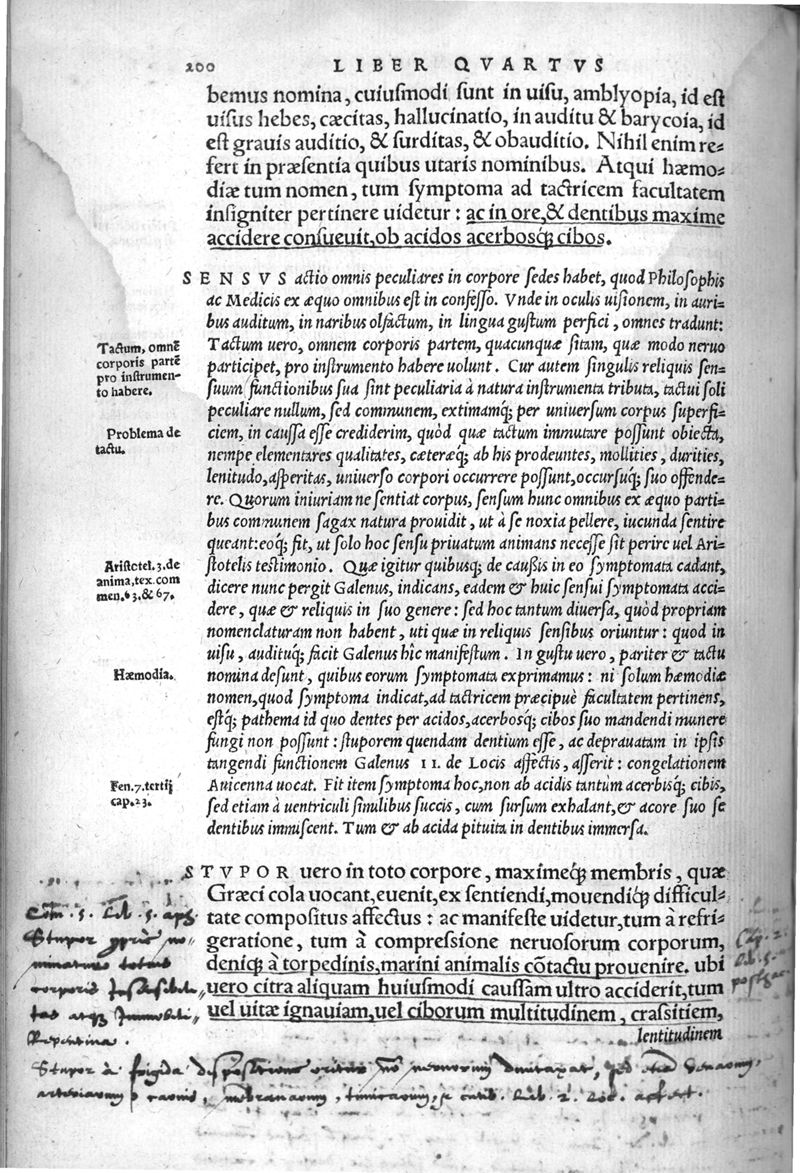 200 LIBER QVARTVS
bemus nomina, cuiusmodi sunt in uisu, amblyopia, id est
uisus hebes, cæcitas, hallucinatio, in auditu & barycoia, id
est grauis auditio, & surditas, & obauditio. Nihil enim re-
fert in præsentia quibus utaris nominibus. Atqui hæmo-
diæ tum nomen, tum symptoma ad tactricem facultatem
insigniter pertinere uidetur: ac in ore, & dentibus maxime
accidere consueuit, ob acidos acerbosq́; cibos.
SENSVS actio omnis peculiares in corpore sedes habet, quod Philosophis
ac Medicis ex æquo omnibus est in confesso. Vnde in oculis uisionem, in auri-
bus auditum, in naribus olfactum, in lingua gustum perfici, omnes tradunt:
Tactum uero, omnem corporis partem, quacunque sitam, quæ modo neruo
participet, pro instrumento habere uolunt. Cur autem singulis reliquis sen-
suum functionibus sua sint peculiaria à natura instrumenta tributa, tactui soli
peculiare nullum, sed communem, extimamq́; per uniuersum corpus superfi-
ciem, in caussa esse crediderim, quòd quæ tactum immutare possunt obiecta,
nempe elementares qualitates, cæteræq́; ab his prodeuntes, mollities, durities,
lenitudo, asperitas, uniuerso corpori occurrere possunt, occursuq́; suo offende-
re. Quorum iniuriam ne sentiat corpus, sensum hunc omnibus ex æquo parti-
bus communem sagax natura prouidit, ut à se noxia pellere, iucunda sentire
queant: eoq́; fit, ut solo hoc sensu priuatum animans necesse sit perire uel Ari-
stotelis testimonio. Quæ igitur quibusq; de caußis in eo symptomata cadant,
dicere nunc pergit Galenus, indicans, eadem & huic sensui symptomata acci-
dere, quæ & reliquis in suo genere: sed hoc tantum diuersa, quòd propriam
nomenclaturam non habent, uti quæ in reliquis sensibus oriuntur: quod in
uisu, audituq́; facit Galenus hîc manifestum. In gustu uero, pariter & tactu
nomina desunt, quibus eorum symptomata exprimamus: ni solum hæmodiæ
nomen, quod symptoma indicat, ad tactricem præcipuè facultatem pertinens,
estq́; pathema id quo dentes per acidos, acerbosq́; cibos suo mandendi munere
fungi non possunt: stuporem quendam dentium esse, ac deprauatam in ipsis
tangendi functionem Galenus 11. de Locis affectis, asserit: congelationem
Auicenna uocat. Fit item symptoma hoc, non ab acidis tantùm acerbisq́; cibis,
sed etiam à uentriculi similibus succis, cum sursum exhalant, & acore suo se
dentibus immiscent. Tum & ab acida pituita in dentibus immersa.
Tactum, omnẽ
corporis partẽ
pro instrumen-
to habere.
Problema de
tactu.
Aristotel. 3. de
anima, tex. com
men. 63. & 67.
Hæmodia.
Fen. 7. tertij
cap. 23.
STVPOR uero in toto corpore, maximeq́; membris, quæ
Græci cola uocant, euenit, ex sentiendi, mouendiq́; difficul-
tate compositus affectus: ac manifeste uidetur, tum à refri-
geratione, tum à compressione neruosorum corporum,
deniq; à torpedinis, marini animalis cõtactu prouenire. ubi
uero citra aliquam huiusmodi caussam ultro acciderit, tum
uel uitæ ignauiam, uel ciborum multitudinem, crassitiem,
lentitudinem
Com. 5. Lib. 5. aph.
Stupor no-
minatur totius
corporis Insensibili-
tas atq; Immobili-
Repentina.
Stupor à frigida dispositione oritur nõ neruorum duntaxat, sed etiã uenarum,
arteriarum carnis, mẽbranarum, tunicarum, & cutis. Lib. 2. Loc. affect.